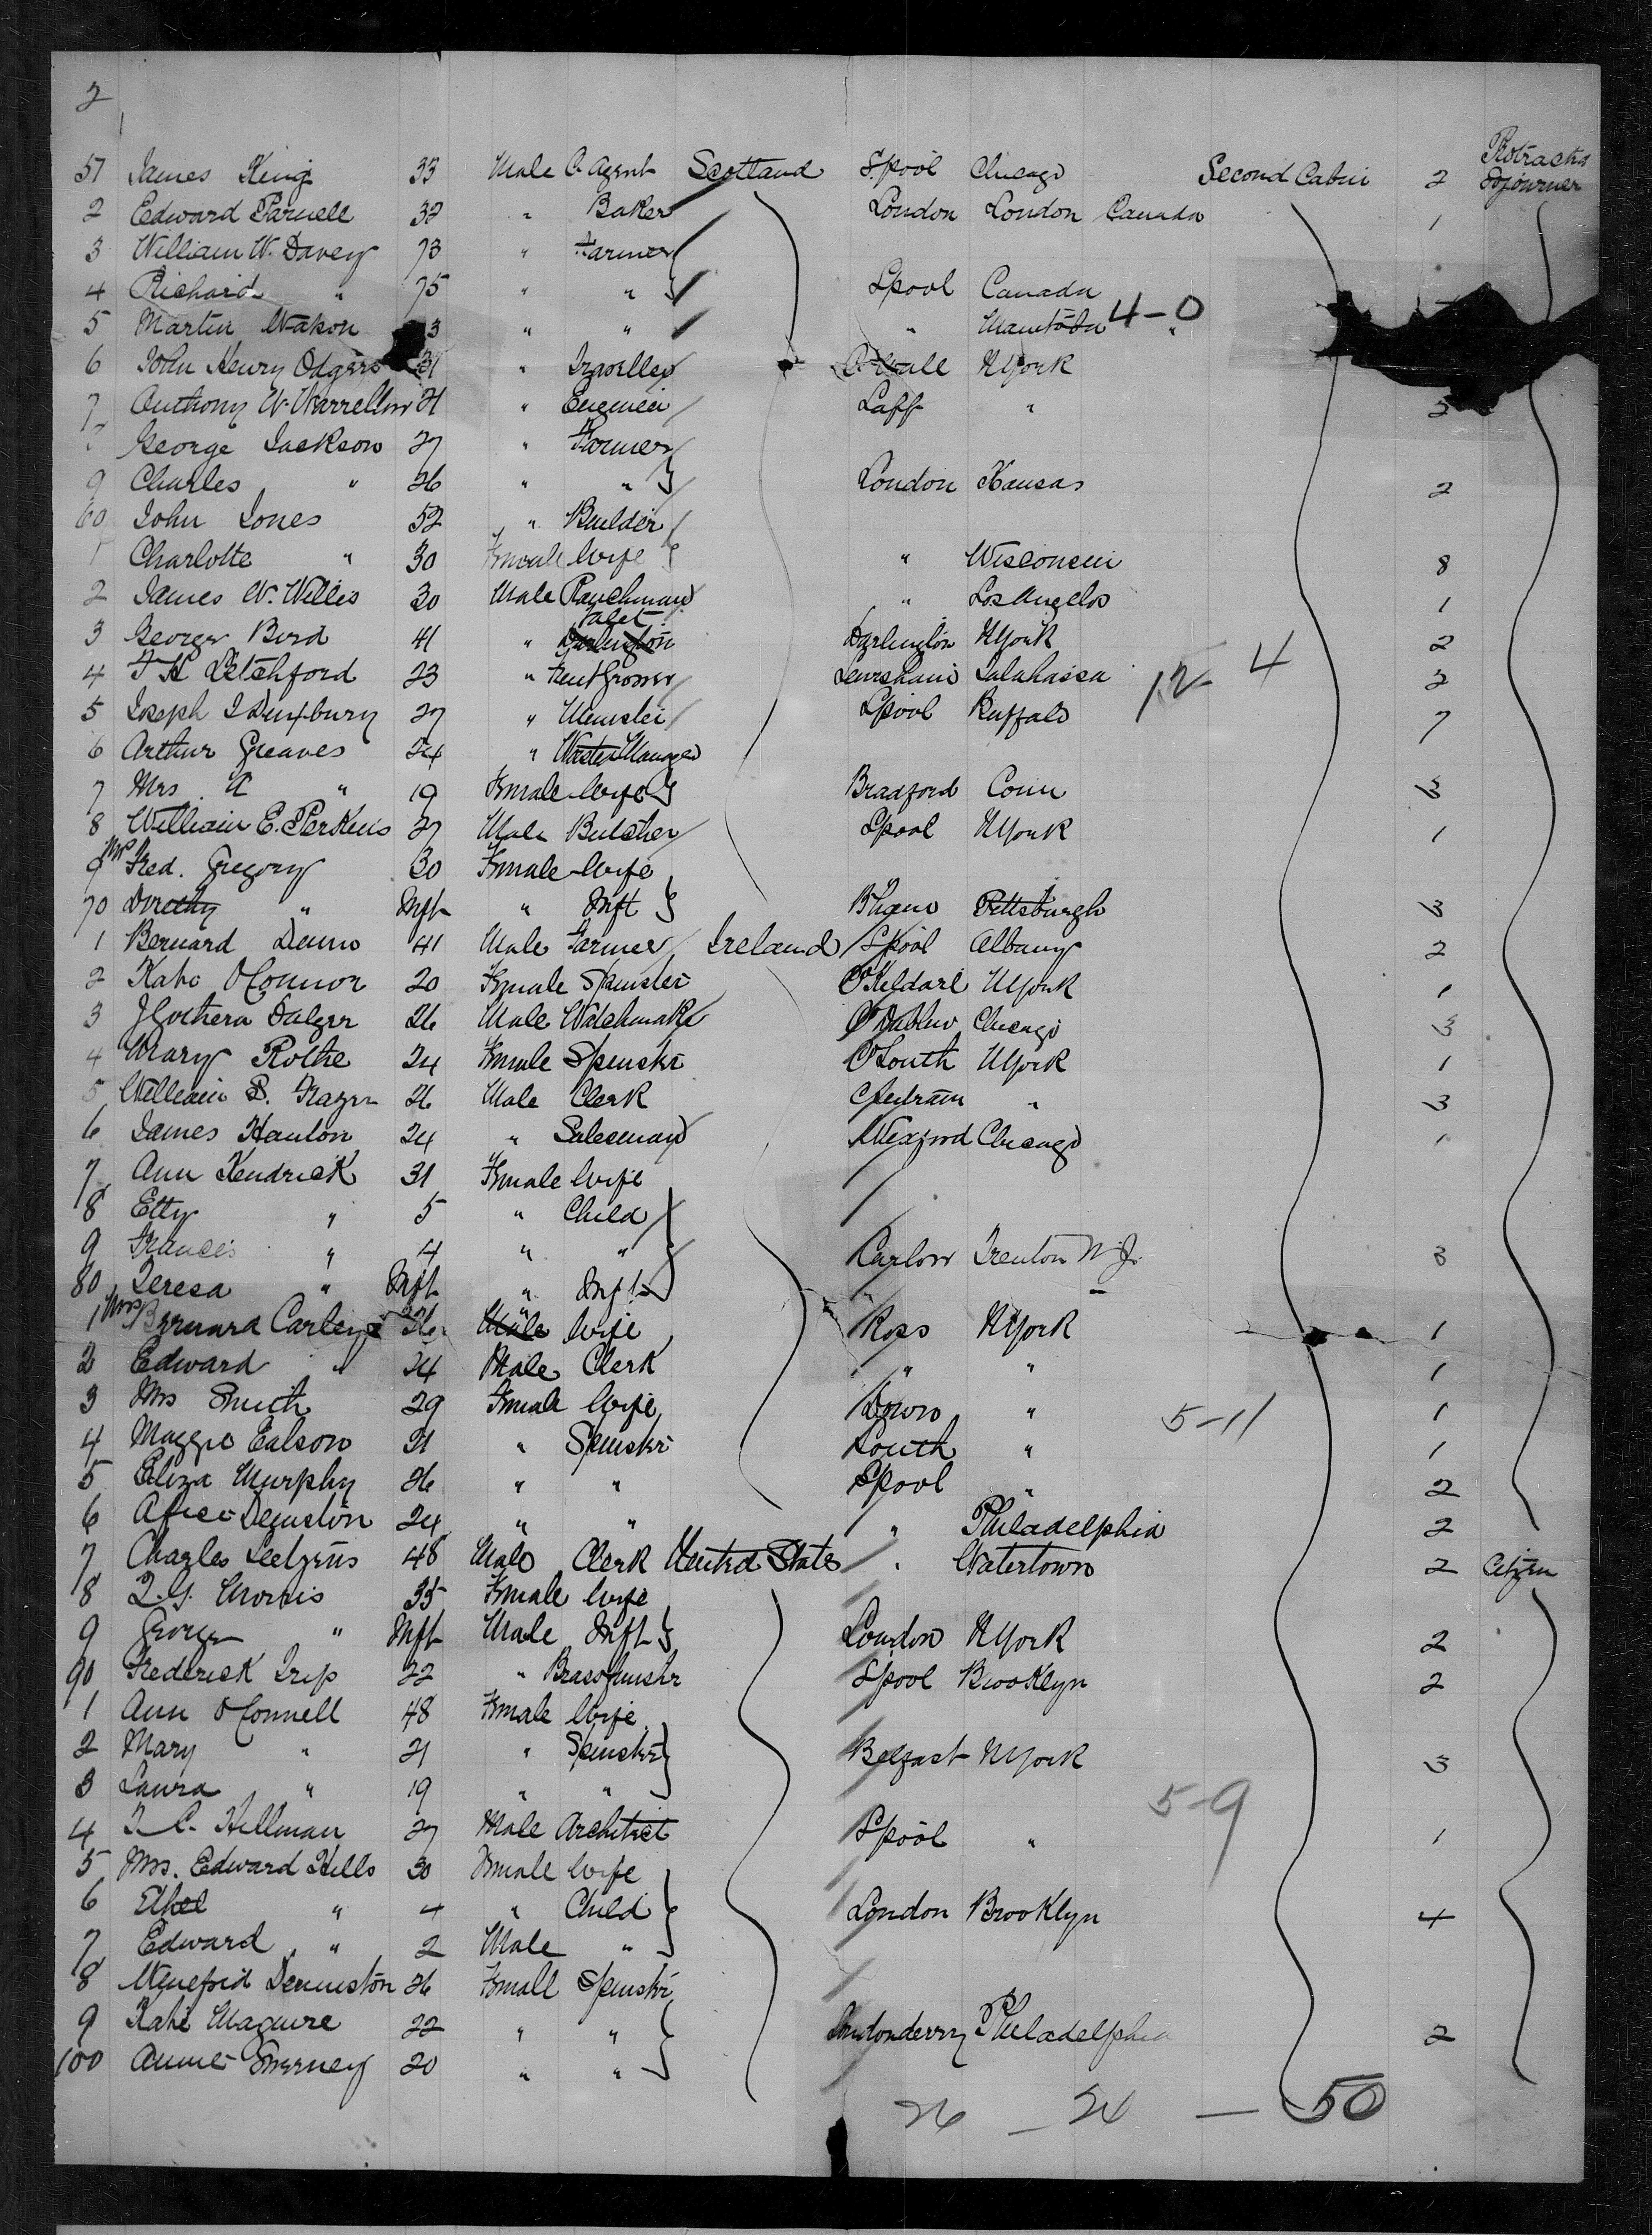 2
Protracted
51 James King 33 Male C. Agent Scotland L'pool Chicago Second Cabin 2 Sojourner
2 Edward Parnell 32 " Baker London London Canada 1
3 William W. Davey 73 " Farmer
4 Richard " 75 " " L'pool Canada
5 Martin 3 " " " Manitoba 4-0 "
6 John Henry Odgers 31 " Traveller NYork
7 Anthony W. Warrellow 21 " Engineer "
George Jackson 27 " Farmer
9 Charles " 26 " " London Kansas 2
60 John Jones 52 " Builder
1 Charlotte " 30 Female Wife " Wisconsin 8
2 James W. Willis 30 Male Ranchman " Los Angelos 1
Valet
3 George Bird 41 " Darlington Darlington NYork 2
4 23 " 2
12 4
5 Joseph 27 " Minister L'pool Buffalo 7
6 Arthur Greaves 24 "
7 Mrs. A " 19 Female Wife Bradford Conn 3
8 William E. Perkins 27 Male Butcher L'pool NYork 1
9 Mrs Fred. Gregory 30 Female Wife
70 Dorothy " Inft " Inft B'ham Pittsburgh 3
1 Bernard Dunn 41 Male Farmer Ireland L'pool Albany 2
2 Kate O'Connor 20 Female Spinster Co Kildare NYork 1
3 26 Male Watchmaker Co Dublin Chicago 3
4 Mary Rothe 24 Female Spinster Co Louth NYork 1
5 William S. Frazer 26 Male Clerk " 3
6 James Hanlon 24 " Salesman Wexford Chicago 1
7 Ann Kendrick 31 Female Wife
8 Etty " 5 " Child
9 Francis " 4 " " Carlow Trenton N.J. 3
80 Teresa " Inft " Inft
1 Mrs Wife Ross NYork 1
2 Edward " 24 Male Clerk " " 1
3 Mrs Smith 29 Female Wife Down " 1
5-11
4 Maggie Ealson 21 " Spinster Louth " 1
5 Eliza Murphy 26 " " L'pool " 2
6 24 " " " Philadelphia 2
7 Charles 48 Male Clerk United States " Watertown 2 Citizen
8 Morris 35 Female Wife
9 George " Inft Male Inft London NYork 2
90 Frederick Trip 22 " Brassfinisher L'pool Brooklyn 2
1 Ann O'Connell 48 Female Wife
2 Mary " 21 " Spinster Belfast NYork 3
3 Laura " 19 " "
5-9
4 Hillman 27 Male Architect L'pool " 1
5 Mrs. Edward Hills 30 Female Wife
6 Ethel " 4 " Child London Brooklyn 4
7 Edward " 2 Male "
8 Winefrid Denniston 26 Female Spinster
9 Kate Maguire 22 " " Londonderry Philadelphia 2
100 Annie 20 " "
26 - 24 - 50